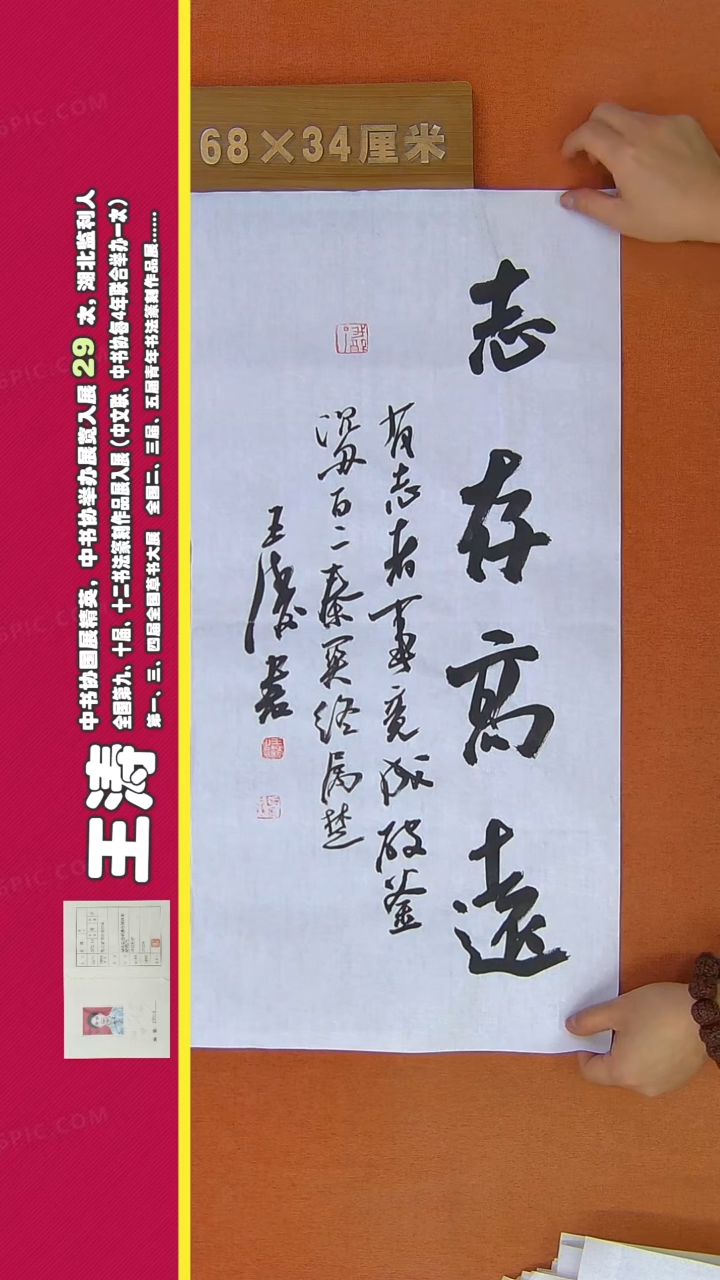 68×34厘米
志存高遠
有志者事竟成破釜
沉舟百二秦関终属楚
王涛书
王涛
中书协国展精英，中书协举办展览入展29次，湖北监利人
全国第九、十届、十二书法篆刻作品展入展（中文联、中书协每4年联合举办一次）
第一、三、四届全国草书大展 全国二、三届、五届青年书法篆刻作品展......